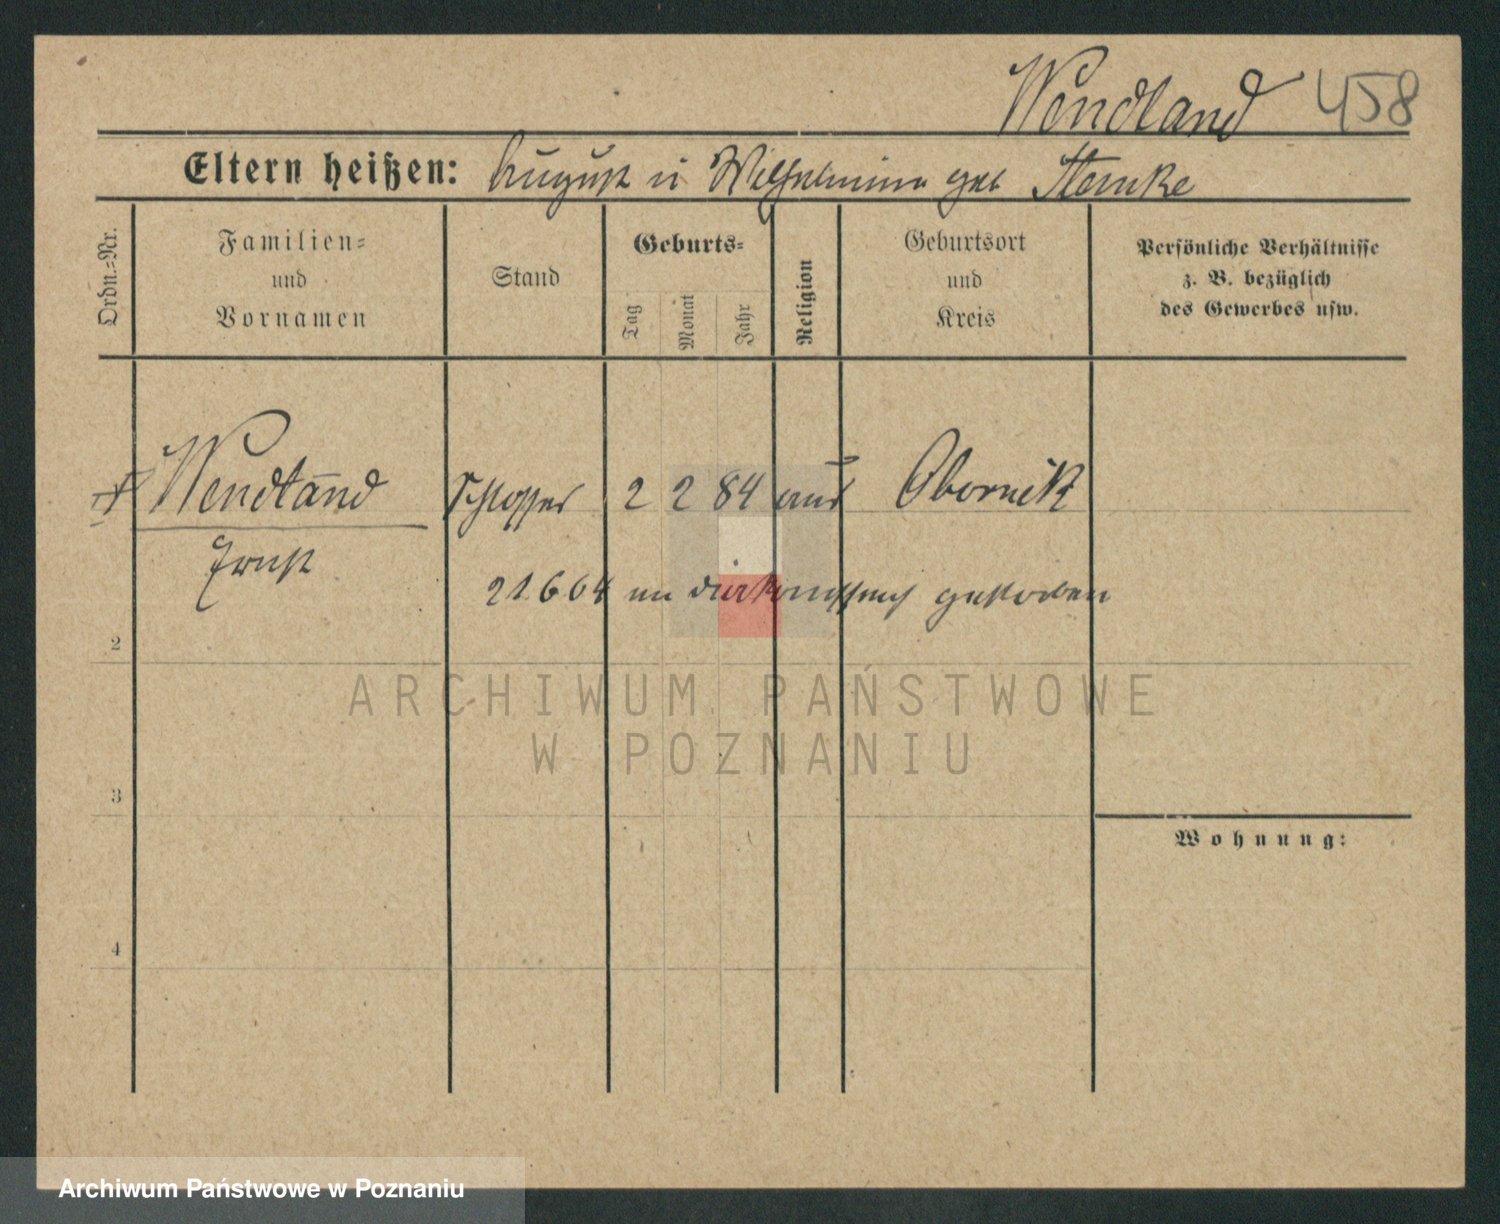 Wendland 458
Eltern heißen: August u Wilhelmine geb Stemke
Ordn.-Nr.
Familien-
und
Vornamen
Stand
Geburts-
Tag
Monat
Jahr
Religion
Geburtsort
und
Kreis
Persönliche Verhältnisse
z. B. bezüglich
des Gewerbes usw.
Wendland Schlosser 2 2 84 Obornik
Ernst
21.6.04 im gestorben
2
ARCHIWUM PAŃSTWOWE
W POZNANIU
3
Wohnung:
4
Archiwum Państwowe w Poznaniu